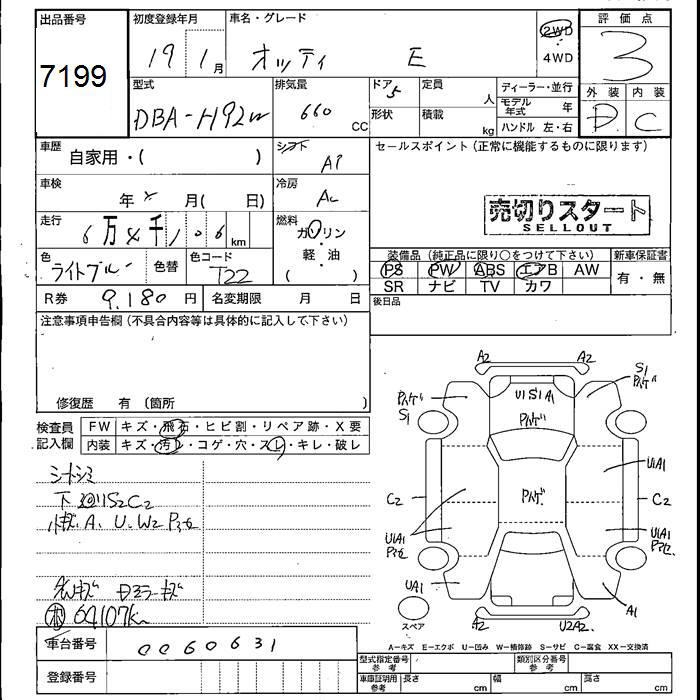 出品番号
7199
初度登録年月
19 1 月
車名・グレード
オッティ E
2WD
4WD
評価点
3
型式
DBA-H92W
排気量
660 CC
ドア 5
形状
定員
人
積載
kg
ディーラー・並行
モデル年式 年
ハンドル 左・右
外装
D
内装
C
車歴
自家用・( )
シフト
AT
セールスポイント(正常に機能するものに限ります)
車検
年 月( 日)
冷房
AC
売切りスタート
SELLOUT
走行
6万4千106km
燃料
ガソリン
・
軽・油
( )
色
ライトブルー
色替
色コード
T22
装備品(純正品に限り○をつけて下さい)
新車保証書
PS PW ABS エアB AW
SR ナビ TV カワ
有・無
R券 9,180円
名変期限 月 日
後日品
注意事項申告欄(不具合内容等は具体的に記入して下さい)
修復歴 有 〔箇所 〕
検査員
記入欄
FW キズ・飛石・ヒビ割・リペア跡・X要
内装 キズ・汚レ・コゲ・穴・スレ・キレ・破レ
シートシミ
下回りS2C2
小キズ.A.U.W2
Dミラーキズ
64107k
A2
A2
S1
S1
U1S1A1
U1A1
C2
C2
U1A1
U1A1
UA1
A1
A2
U2A2
スペア
A=キズ E=エクボ U=凹み W=補修跡 S=サビ C=腐食 XX=交換済
車台番号
0060631
登録番号
型式指定番号
参考
類別区分番号
参考
車庫証明用
参考
長さ cm
幅 cm
高さ cm